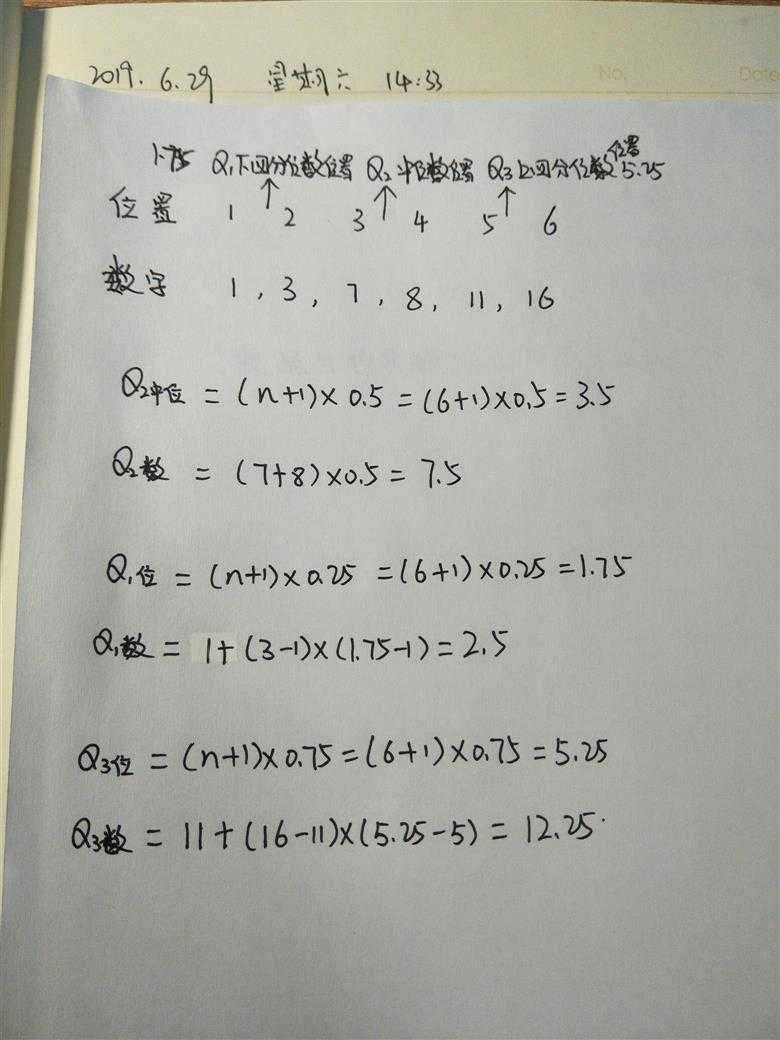 No.
Date
2019. 6.29 星期六 14:33
1.75 Q₁下四分位数位置 Q₂中位数位置 Q₃上四分位数位置 5.25
位置 1 ↑ 2 3 ↑ 4 5 ↑ 6
数字 1, 3, 7, 8, 11, 16
Q₂中位 = (n+1)×0.5 = (6+1)×0.5 = 3.5
Q₂数 = (7+8)×0.5 = 7.5
Q₁位 = (n+1)×0.25 = (6+1)×0.25 = 1.75
Q₁数 = 1+(3-1)×(1.75-1) = 2.5
Q₃位 = (n+1)×0.75 = (6+1)×0.75 = 5.25
Q₃数 = 11+(16-11)×(5.25-5) = 12.25